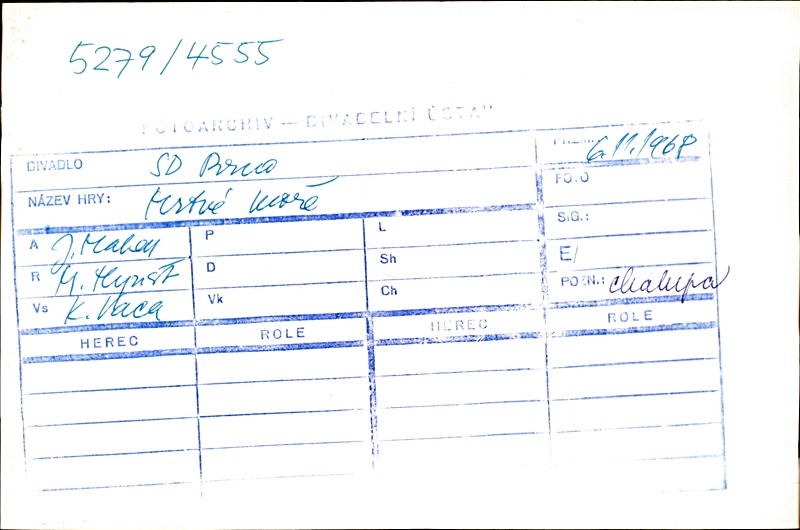 5279/4555
FOTOARCHIV — DIVADELNÍ ÚSTAV
DIVADLO SD Brno
PREM. 6.11.1968
NÁZEV HRY: Mrtvé moře
FOTO
SIG.:
E/
POZN.: Chalupa
A J. Mahen
R M. Hynšt
Vs K. Vaca
P
D
Vk
L
Sh
Ch
HEREC ROLE HEREC ROLE